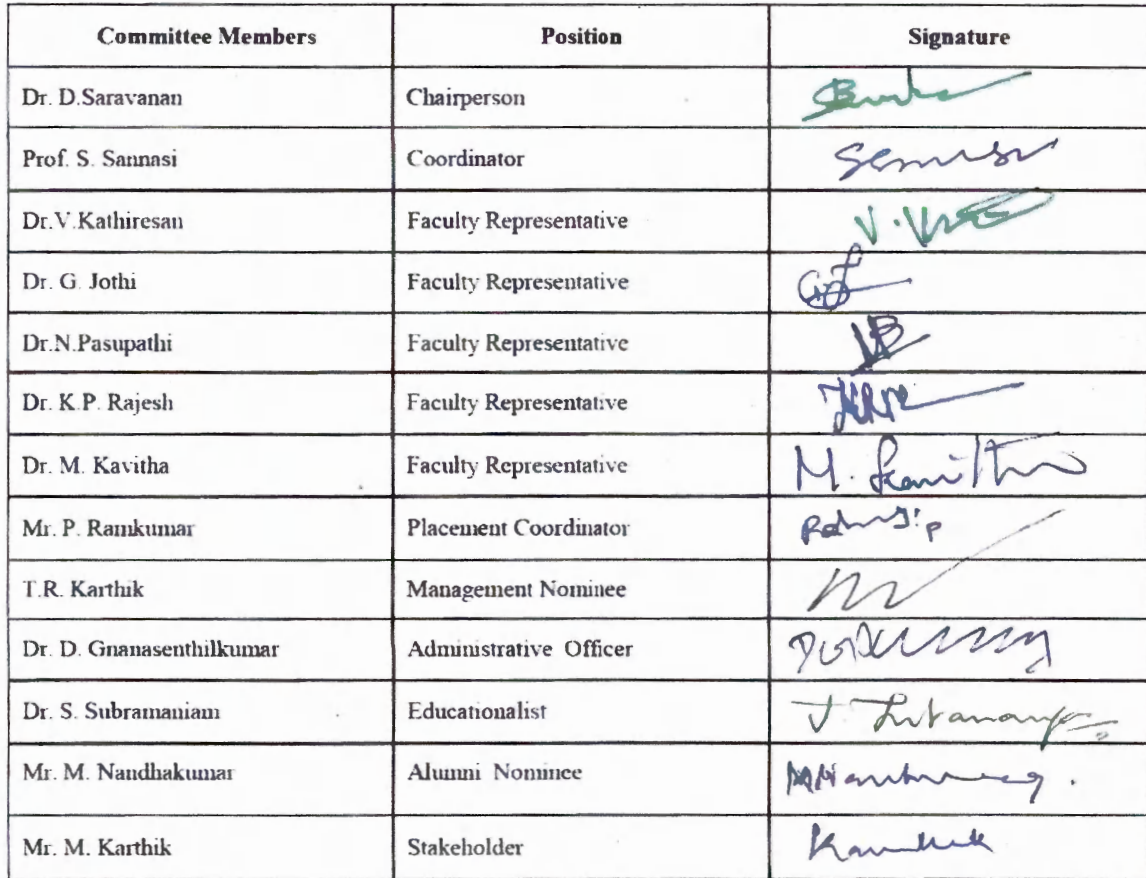 Committee Members Position Signature
Dr. D.Saravanan Chairperson
Prof. S. Sannasi Coordinator
Dr.V.Kathiresan Faculty Representative
Dr. G. Jothi Faculty Representative
Dr.N.Pasupathi Faculty Representative
Dr. K.P. Rajesh Faculty Representative
Dr. M. Kavitha Faculty Representative M. Kavitha
Mr. P. Ramkumar Placement Coordinator
T.R. Karthik Management Nominee
Dr. D. Gnanasenthilkumar Administrative Officer
Dr. S. Subramaniam Educationalist
Mr. M. Nandhakumar Alumni Nominee
Mr. M. Karthik Stakeholder